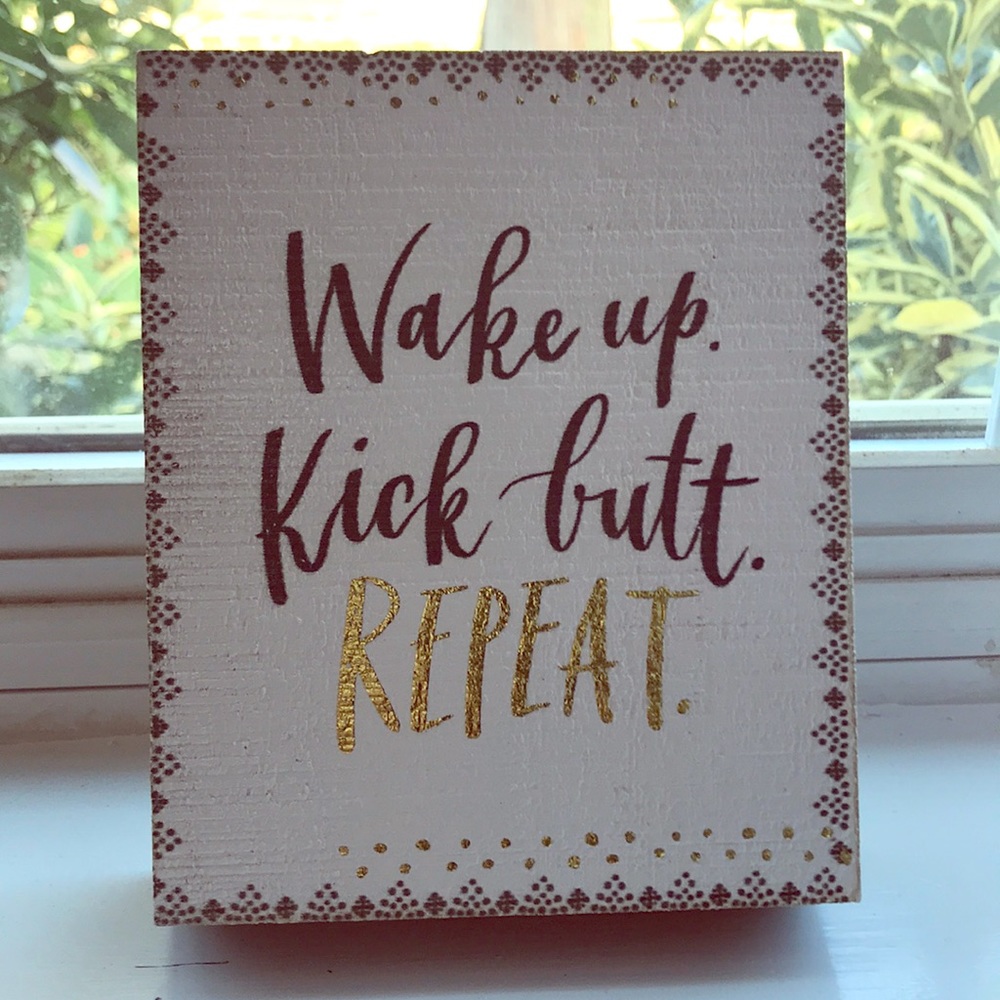 Wake up.
Kick butt.
REPEAT.